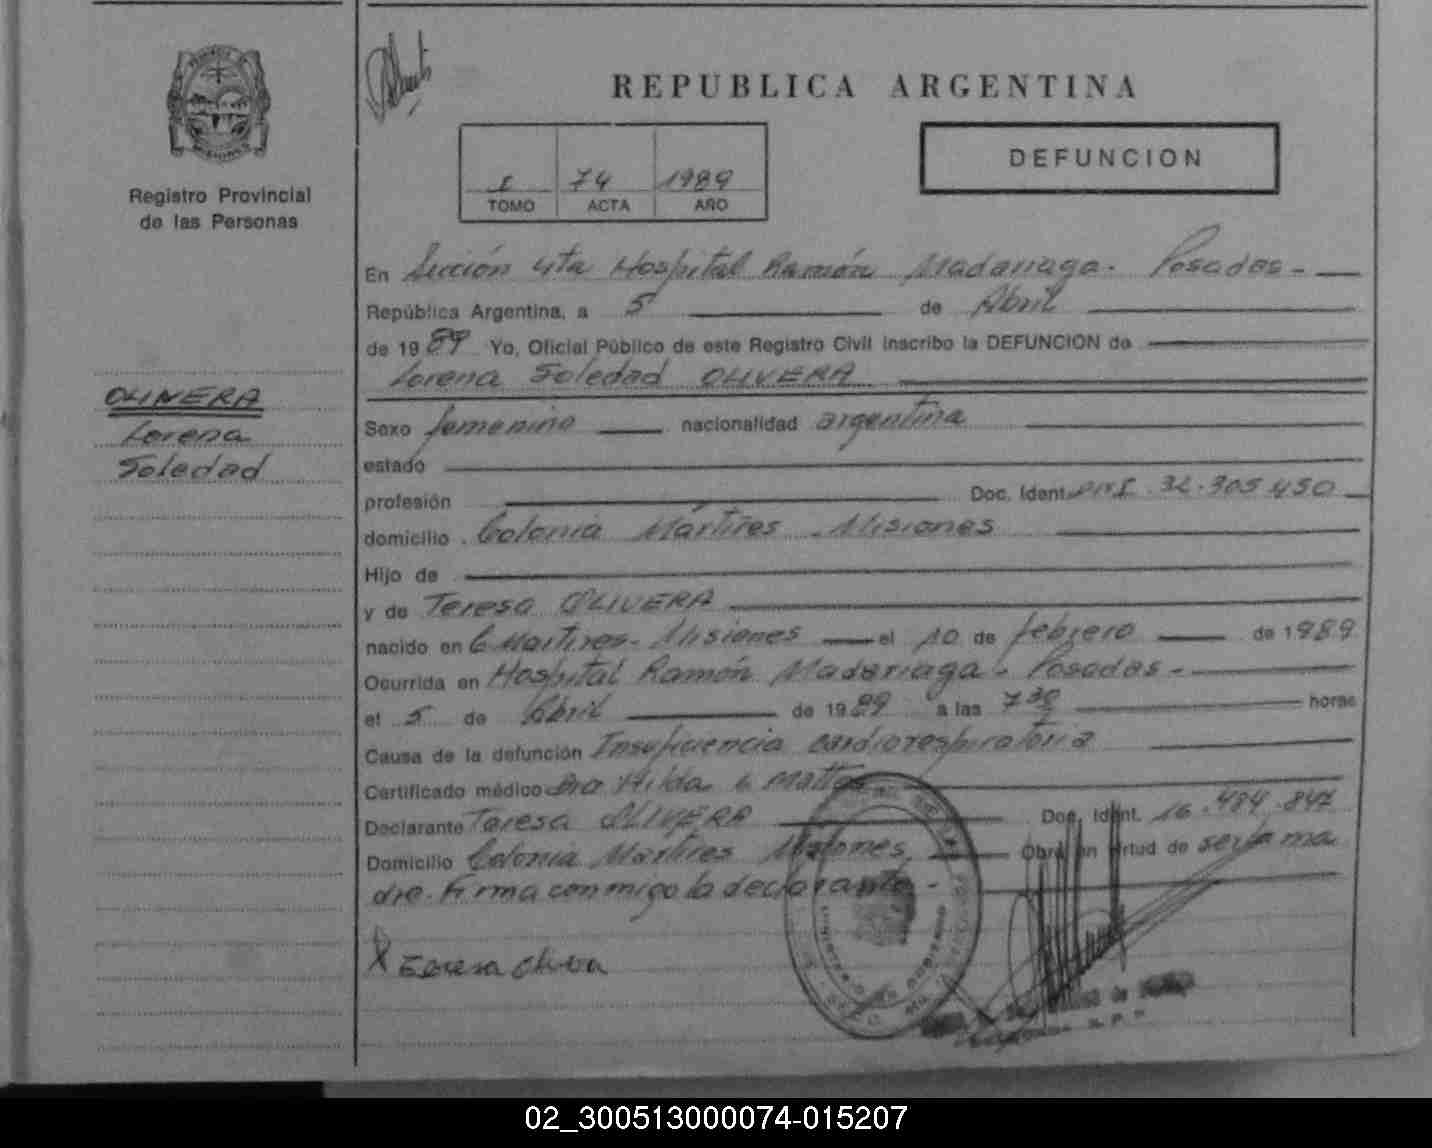 REPUBLICA ARGENTINA
Registro Provincial
de las Personas
I 74 1989
TOMO ACTA AÑO
DEFUNCION
OLIVERA
Lorena
Soledad
En Sección 4ta Hospital Ramón Madariaga - Posadas -
República Argentina, a 5 de Abril
de 1989 Yo, Oficial Público de este Registro Civil inscribo la DEFUNCION de
Lorena Soledad OLIVERA
Sexo femenino nacionalidad argentina
estado
profesión Doc. Ident. DNI. 32.305.450
domicilio. Colonia Mártires - Misiones
Hijo de
y de Teresa OLIVERA
nacido en C. Martires - Misiones el 10 de febrero de 1989
Ocurrida en Hospital Ramón Madariaga - Posadas -
el 5 de Abril de 1989 a las 7 30 horas
Causa de la defunción Insuficiencia cardiorespiratoria
Certificado médico Dra Hilda
Declarante Teresa OLIVERA Doc. Ident. 16.484.847
Domicilio Colonia Mártires Misiones, Obra en virtud de ser la ma
dre. Firma conmigo la declarante -
X Teresa
02_300513000074-015207